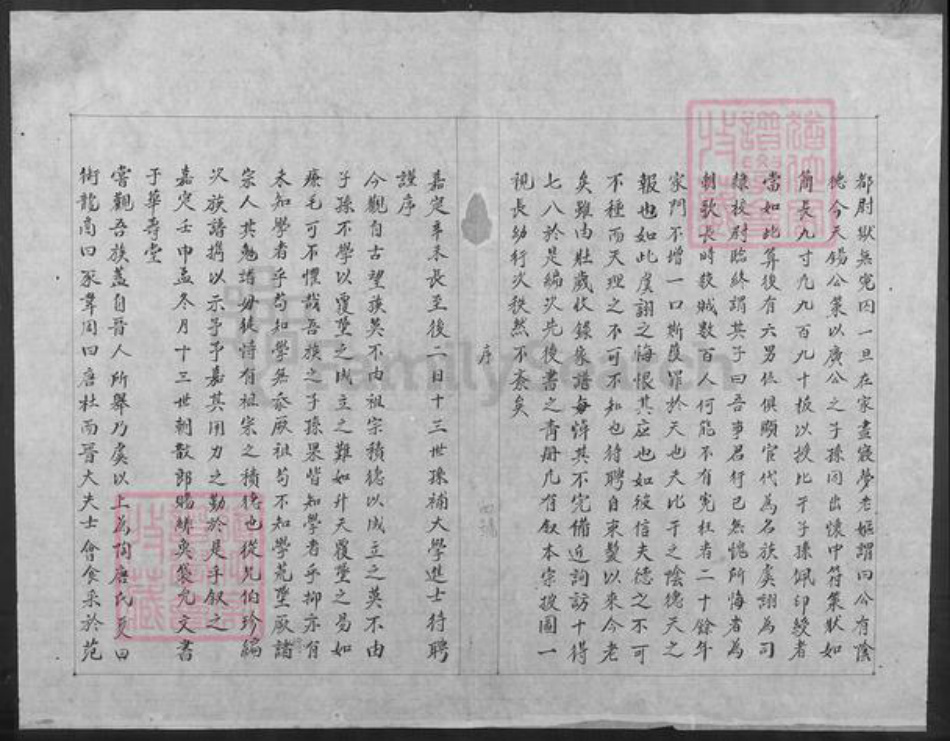 都尉獄無冤囚一旦在家晝寢夢老嫗謂曰公有陰
德今天錫公策以廣公之子孫因出懷中符策狀如
簡長九寸凡九百九十板以授比干子孫佩印綬者
當如此算後有六男位俱顯官代為名族虞詡為司
隸校尉臨終謂其子曰吾事君行已無愧所悔者為
朝歌長時殺賊數百人何能不有冤枉者二十餘年
家門不增一口斯獲罪於天也夫比干之陰德天之
報也如此虞詡之悔恨其應也如彼信夫德之不可
不種而天理之不可不知也待聘自束髮以來今老
矣雖由壯歲收錄家譜每悼其不完備近詢訪十得
七八於是編次先後書之青冊凡有叙本宗披圖一
視長幼行次秩然不紊矣
序
嘉定辛未長至後二日十三世孫補大學進士待聘
謹序
今觀自古望族莫不由祖宗積德以成立之莫不由
子孫不學以覆墜之成立之難如升天覆墜之易如
燎毛可不懼哉吾族之子孫果皆知學者乎抑亦有
未知學者乎苟知學無忝厥祖苟不知學荒墜厥諸
宗人其勉諸毋徒恃有祖宗之積德也從兄伯珍編
次族譜携以示予予嘉其用力之勤於是手叙之
嘉定壬申孟冬月十三世朝散郎賜緋魚袋允文書
于華壽堂
嘗觀吾族蓋自晉人所舉乃虞以上為陶唐氏夏曰
御龍商曰豕韋周曰唐杜而晉大夫士會食采於范
FamilySearch